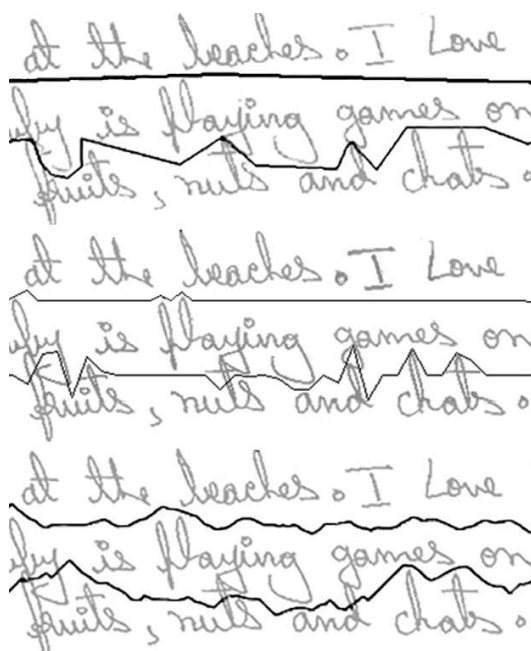 at the beaches. I Love
is playing games on
fruits, nuts and chats.
at the beaches. I Love
is playing games on
fruits, nuts and chats.
at the beaches. I Love
is playing games on
fruits, nuts and chats.